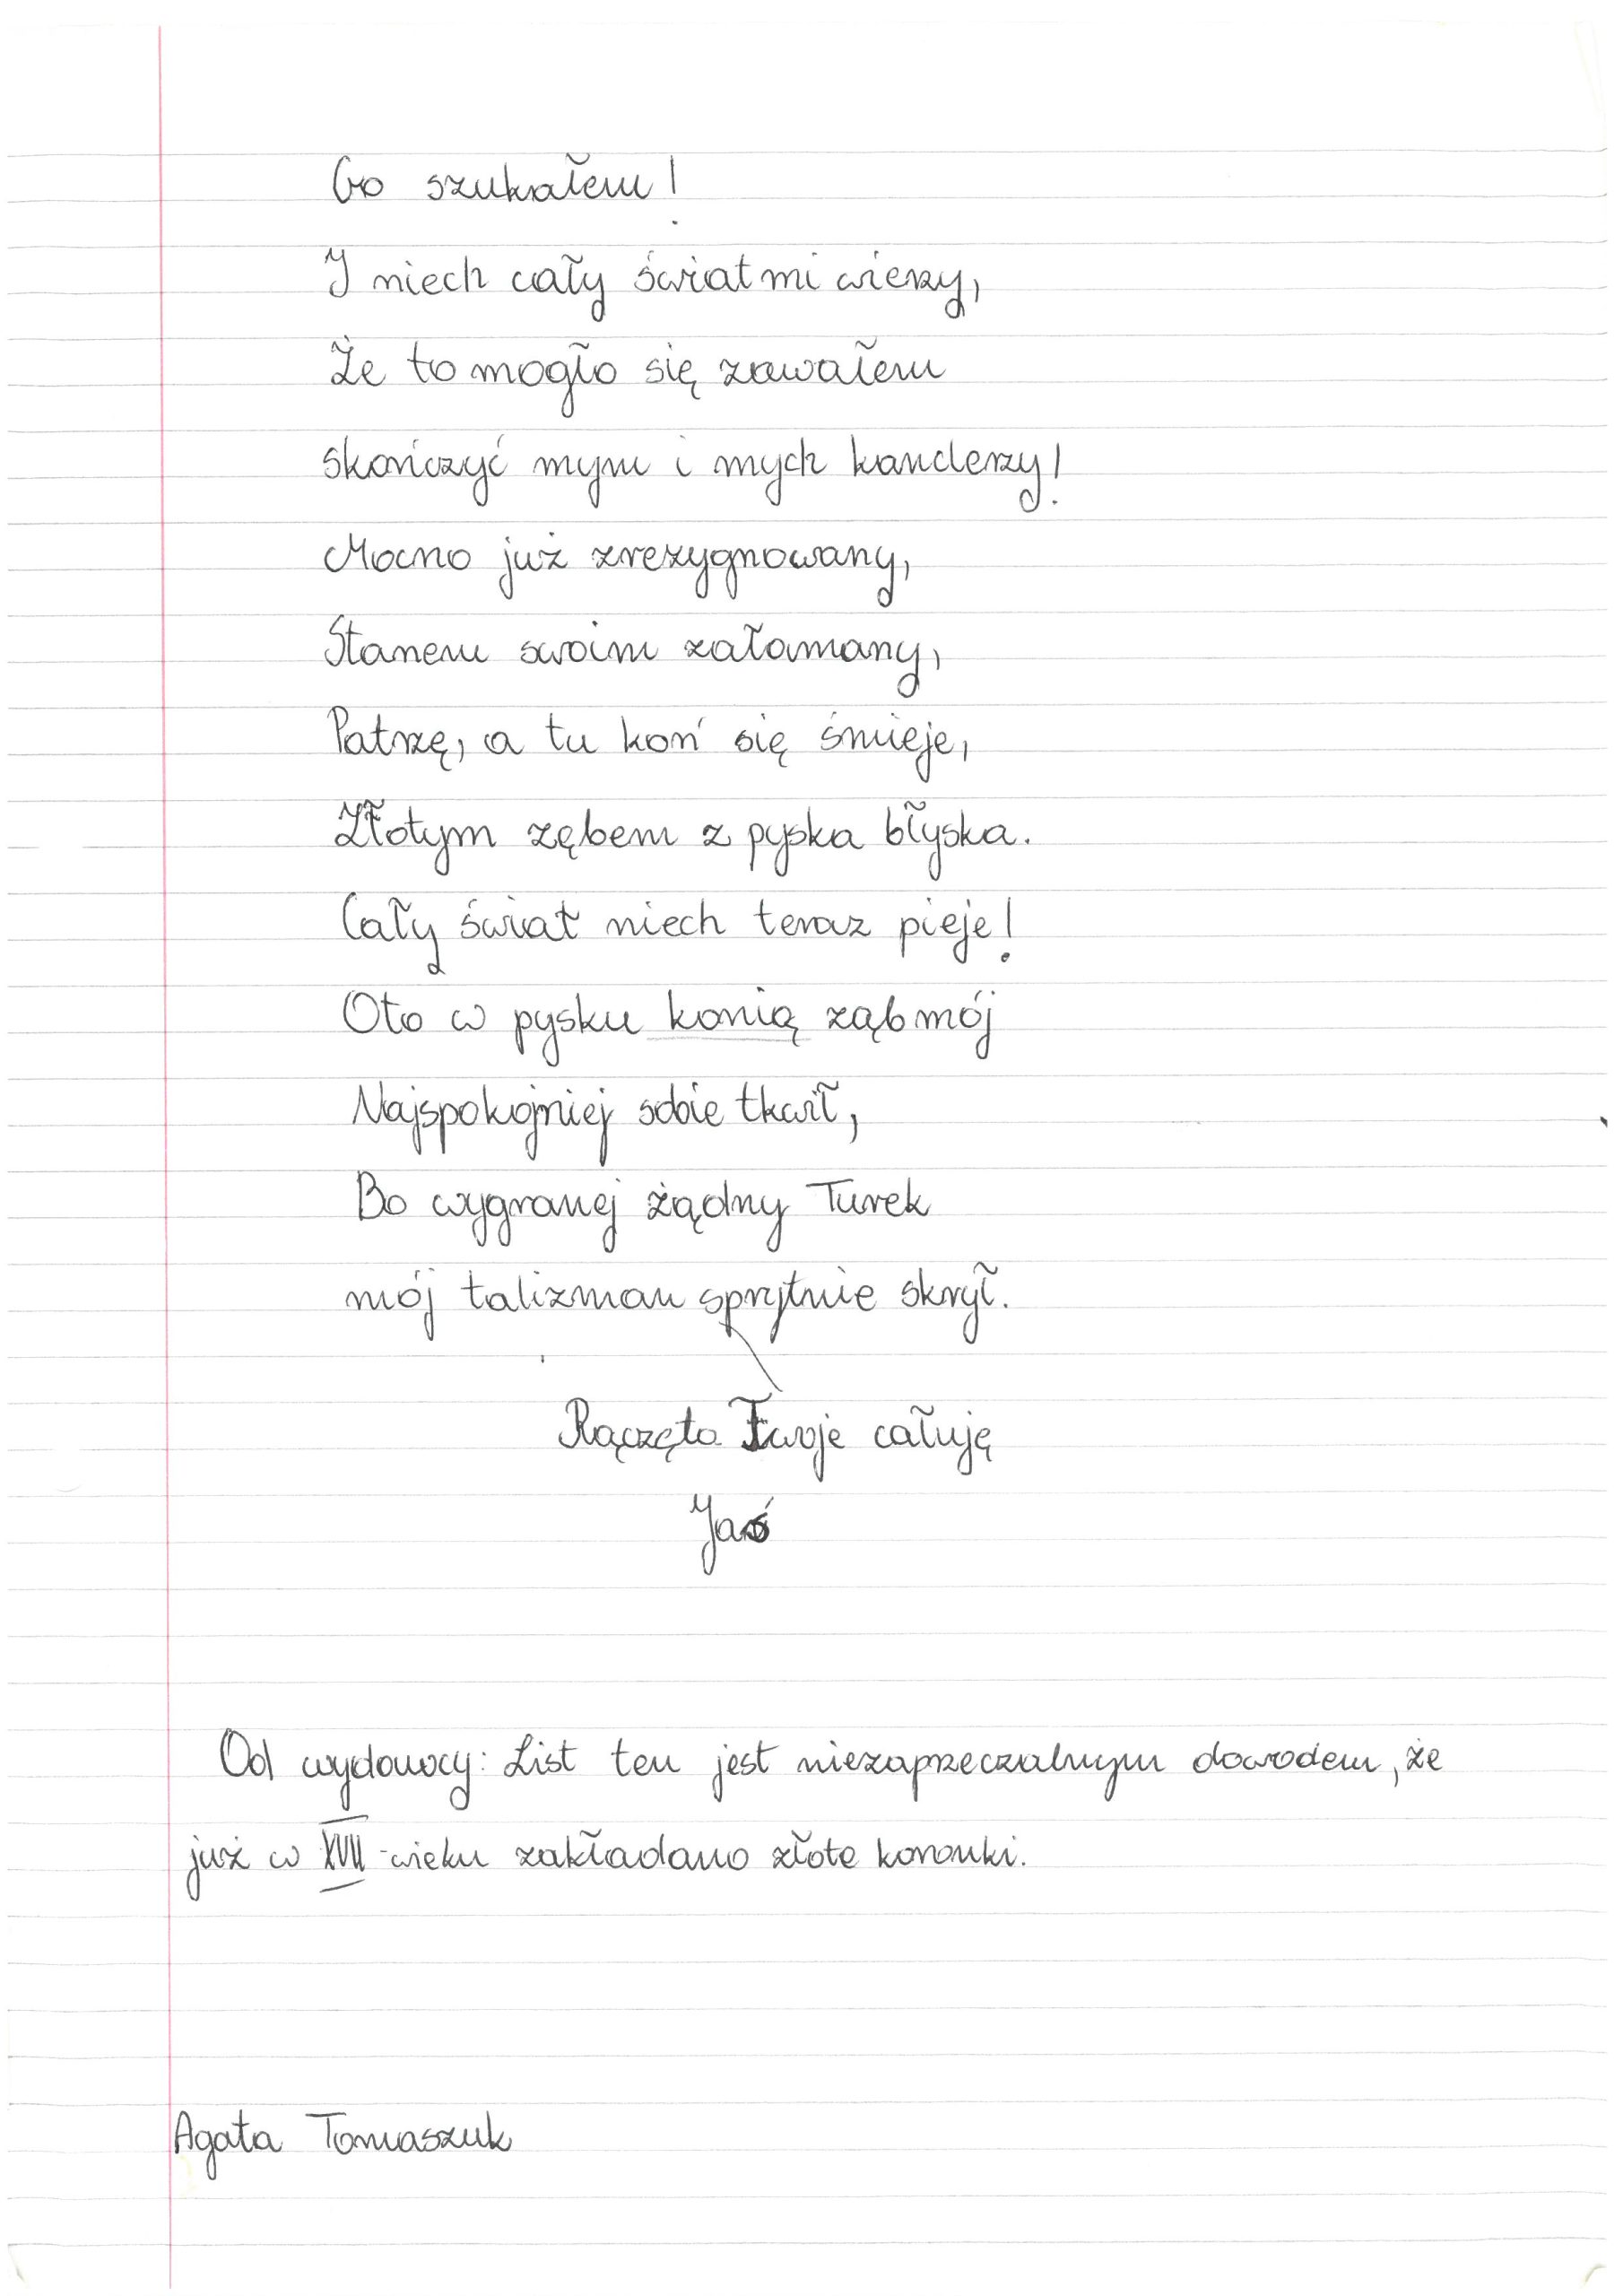 Co szukałem!
I niech cały świat mi wierzy,
Że to mogło się zawałem
skończyć mym i mych kanclerzy!
Mocno już zrezygnowany,
Stanem swoim załamany,
Patrzę, a tu koń się śmieje,
Złotym zębem z pyska błyska.
Cały świat niech teraz pieje!
Oto w pysku konią ząb mój
Najspokojniej sobie tkwił,
Bo wygranej żądny Turek
mój talizman sprytnie skrył.
Rączęta Twoje całuję
Jaś
Od wydawcy: List ten jest niezaprzeczalnym dowodem, że
już w XVII wieku zakładano złote koronki.
Agata Tomaszuk